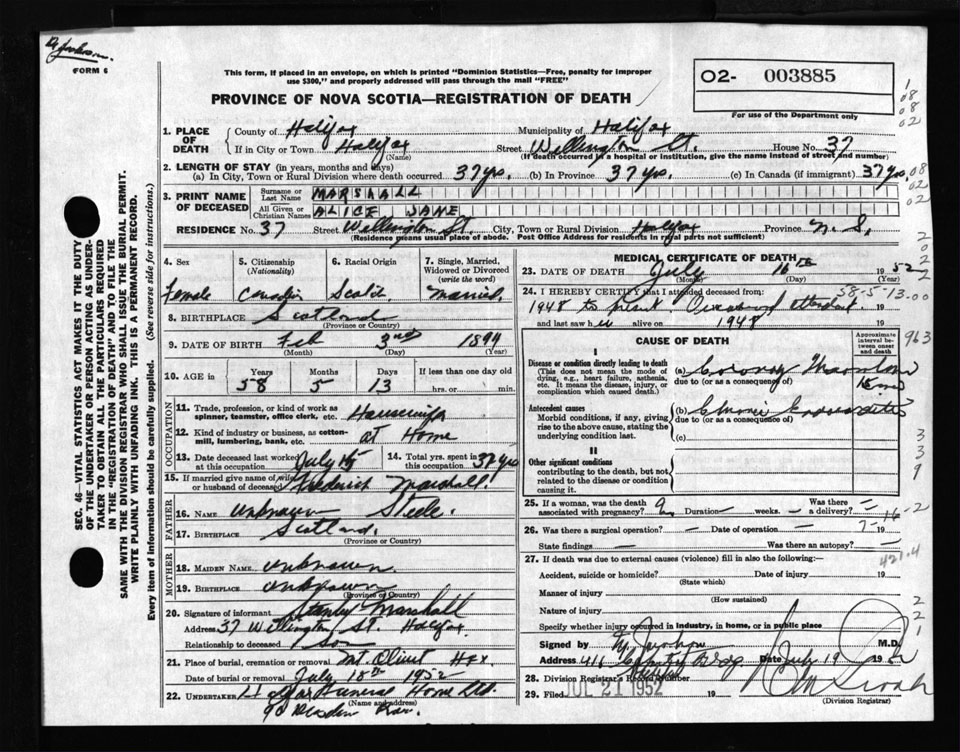 FORM 6
This form, if placed in an envelope, on which is printed "Dominion Statistics—Free, penalty for improper
use $300," and properly addressed will pass through the mail "FREE"
PROVINCE OF NOVA SCOTIA—REGISTRATION OF DEATH
02- 003885
For use of the Department only
1. PLACE OF DEATH
County of Halifax Municipality of Halifax
If in City or Town Halifax Street Wellington St. House No. 37
(Name) (If death occurred in a hospital or institution, give the name instead of street and number)
2. LENGTH OF STAY (in years, months and days)
(a) In City, Town or Rural Division where death occurred 37 yrs. (b) In Province 37 yrs. (c) In Canada (if immigrant) 37 yrs.
3. PRINT NAME OF DECEASED
Surname or Last Name MARSHALL
All Given or Christian Names ALICE JANE
RESIDENCE No. 37 Street Wellington St. City, Town or Rural Division Halifax Province N.S.
(Residence means usual place of abode. Post Office Address for residents in rural parts not sufficient)
4. Sex Female
5. Citizenship (Nationality) Canadian
6. Racial Origin Scotch
7. Single, Married, Widowed or Divorced (write the word) Married
8. BIRTHPLACE Scotland
(Province or Country)
9. DATE OF BIRTH Feb 3rd 1894
(Month) (Day) (Year)
10. AGE in Years 58 Months 5 Days 13 If less than one day old hrs. or min.
OCCUPATION
11. Trade, profession, or kind of work as spinner, teamster, office clerk, etc. Housewife
12. Kind of industry or business, as cotton-mill, lumbering, bank, etc. at Home
13. Date deceased last worked at this occupation July 15
14. Total yrs. spent in this occupation 37 yrs
15. If married give name of wife or husband of deceased Frederick Marshall.
FATHER
16. NAME unknown Steele.
17. BIRTHPLACE Scotland.
(Province or Country)
MOTHER
18. MAIDEN NAME unknown.
19. BIRTHPLACE unknown
(Province or Country)
20. Signature of informant Stanley Marshall
Address 37 Wellington St. Halifax.
Relationship to deceased Son
21. Place of burial, cremation or removal Mt. Olivet Hfx
Date of burial or removal July 18th 1952
22. UNDERTAKER Halifax Funeral Home Ltd.
(Name and address)
MEDICAL CERTIFICATE OF DEATH
23. DATE OF DEATH July 16th 1952
(Month) (Day)
24. I HEREBY CERTIFY that I attended deceased from:
58-5-13.00
1948 to present.
and last saw her alive on 1948 19
CAUSE OF DEATH
Approximate interval between onset and death
I
Disease or condition directly leading to death
(This does not mean the mode of dying, e.g., heart failure, asthenia, etc. It means the disease, injury, or complication which caused death.)
(a) Coronary
due to (or as a consequence of)
15 min
Antecedent causes
Morbid conditions, if any, giving rise to the above cause, stating the underlying condition last.
(b) Chronic
due to (or as a consequence of)
(c)
II
Other significant conditions
contributing to the death, but not related to the disease or condition causing it.
25. If a woman, was the death associated with pregnancy? Duration weeks. Was there a delivery?
26. Was there a surgical operation? — Date of operation — 19
State findings — Was there an autopsy? —
27. If death was due to external causes (violence) fill in also the following:—
Accident, suicide or homicide? Date of injury 19
(State which)
Manner of injury
(How sustained)
Nature of injury
Specify whether injury occurred in industry, in home, or in public place
Signed by M.D.
Address Date July 19 1952
28. Division Registrar's Record Number
29. Filed JUL 21 1952 19
(Division Registrar)
SEC. 46—VITAL STATISTICS ACT MAKES IT THE DUTY
OF THE UNDERTAKER OR PERSON ACTING AS UNDER-
TAKER TO OBTAIN ALL THE PARTICULARS REQUIRED
IN THE "REGISTRATION OF DEATH" AND TO FILE THE
SAME WITH THE DIVISION REGISTRAR WHO SHALL ISSUE THE BURIAL PERMIT.
WRITE PLAINLY WITH UNFADING INK. THIS IS A PERMANENT RECORD.
Every item of information should be carefully supplied. (See reverse side for instructions.)